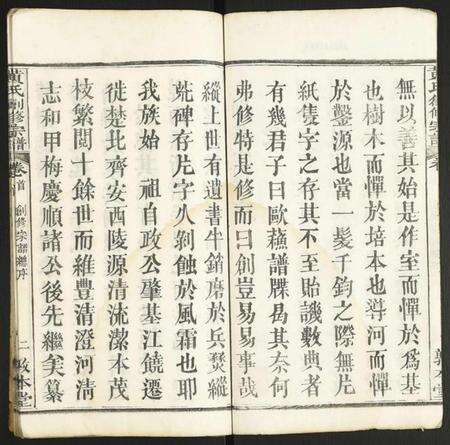 無以善其始是作室而憚於為基
也樹木而憚於培本也導河而憚
於鑿源也當一髮千鈞之際無片
紙隻字之存其不至貽譏數典者
有幾君子曰歐蘇譜牒爲其奈何
弗修特是修而曰創豈易易事哉
縱上世有遺書牛銷磨於兵燹縱
毵碑存片字久剝蝕於風霜也耶
我族始 祖自政公肇基江饒遷
徙楚北齊安西陵源清流潔本茂
枝繁閱十餘世而維豐清澄河清
志和甲梅慶順諸公後先繼美纂
黃氏創修宗譜
卷首 創修宗譜序
二
敦本堂